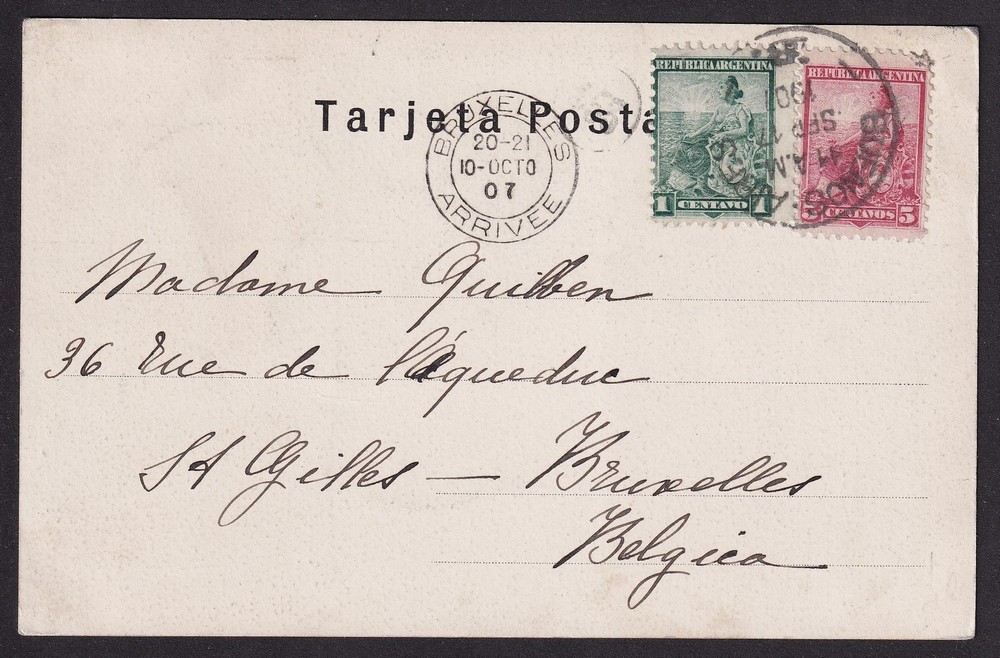 Tarjeta Posta
BRUXELLES
20-21
10-OCTO
07
ARRIVEE
REPÚBLICA ARGENTINA
1 CENTAVO 1
REPÚBLICA ARGENTINA
5 CENTAVOS 5
BUENOS AIRES
11 A.M.
SEP 17
190
Madame
36 Rue de l'áqueduc
St Gilles — Bruxelles
Belgica